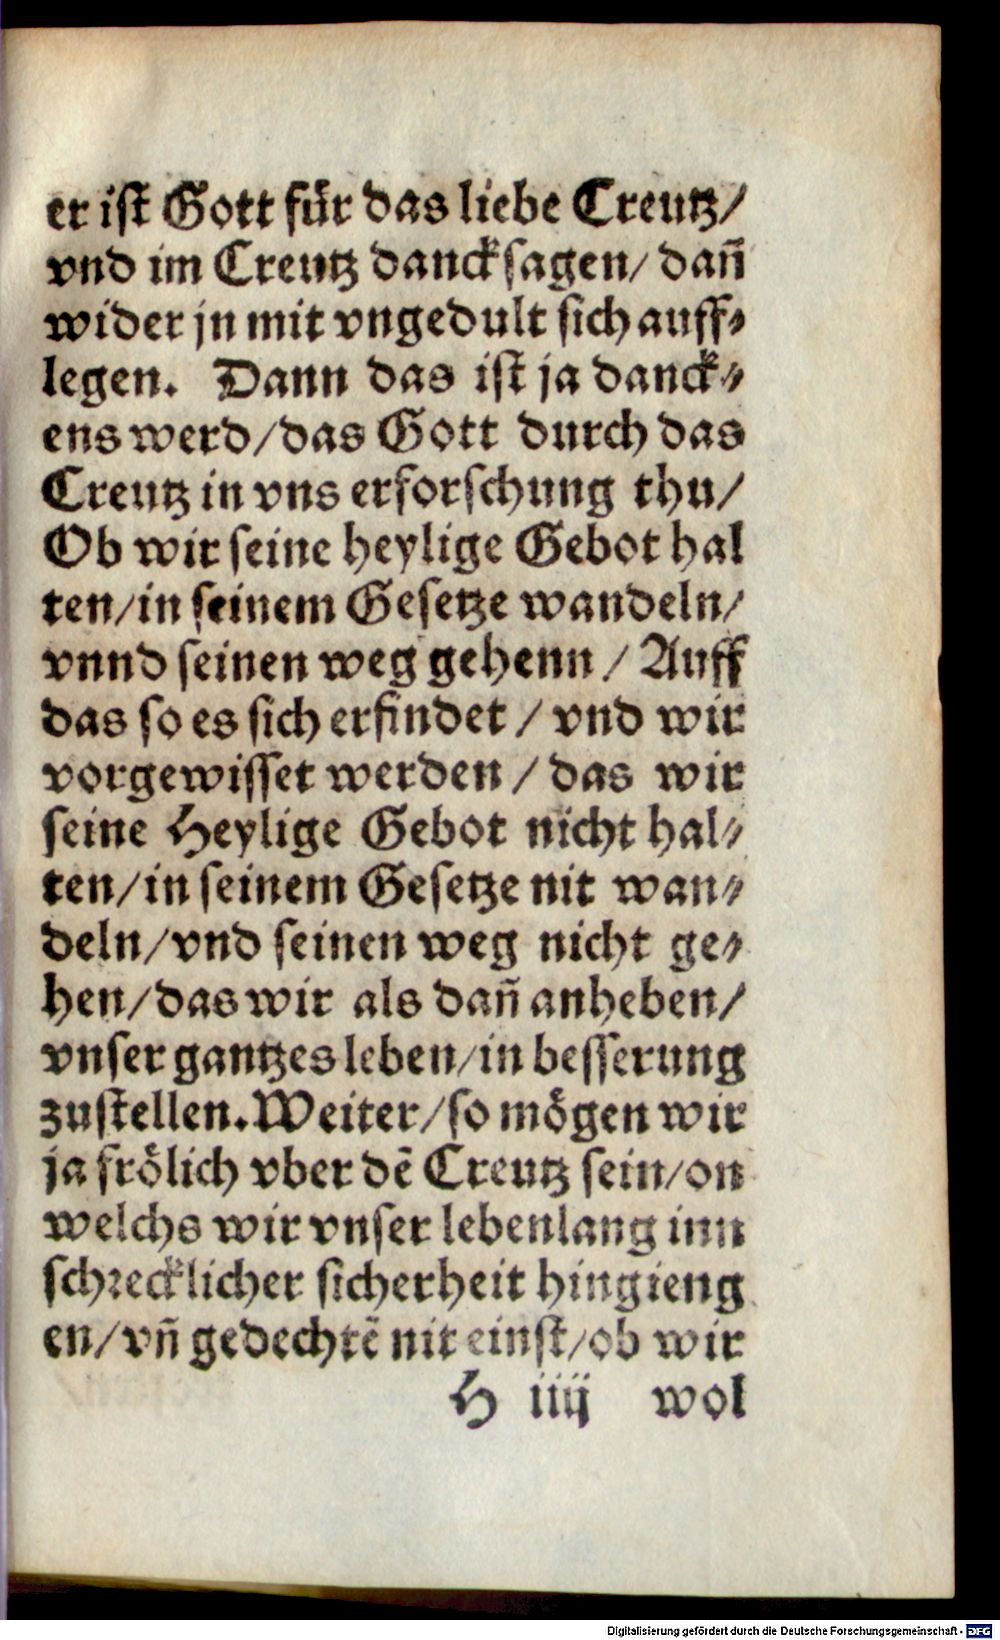 er ist Gott für das liebe Creutz/
vnd im Creutz dancksagen/ dañ
wider jn mit vngedult sich auff⸗
legen. Dann das ist ja danck⸗
ens werd/das Gott durch das
Creutz in vns erforschung thu/
Ob wir seine heylige Gebot hal
ten/in seinem Gesetze wandeln/
vnnd seinen weg gehenn / Auff
das so es sich erfindet / vnd wir
vorgewisset werden / das wir
seine Heylige Gebot nicht hal⸗
ten/in seinem Gesetze nit wan⸗
deln/vnd seinen weg nicht ge⸗
hen/das wir als dañ anheben/
vnser gantzes leben/in besserung
zustellen. Weiter/so mögen wir
ja frölich vber dẽ Creutz sein/on
welchs wir vnser lebenlang inn
schrecklicher sicherheit hingieng
en/vñ gedechtẽ nit einst/ob wir
H iiij wol
Digitalisierung gefördert durch die Deutsche Forschungsgemeinschaft - DFG